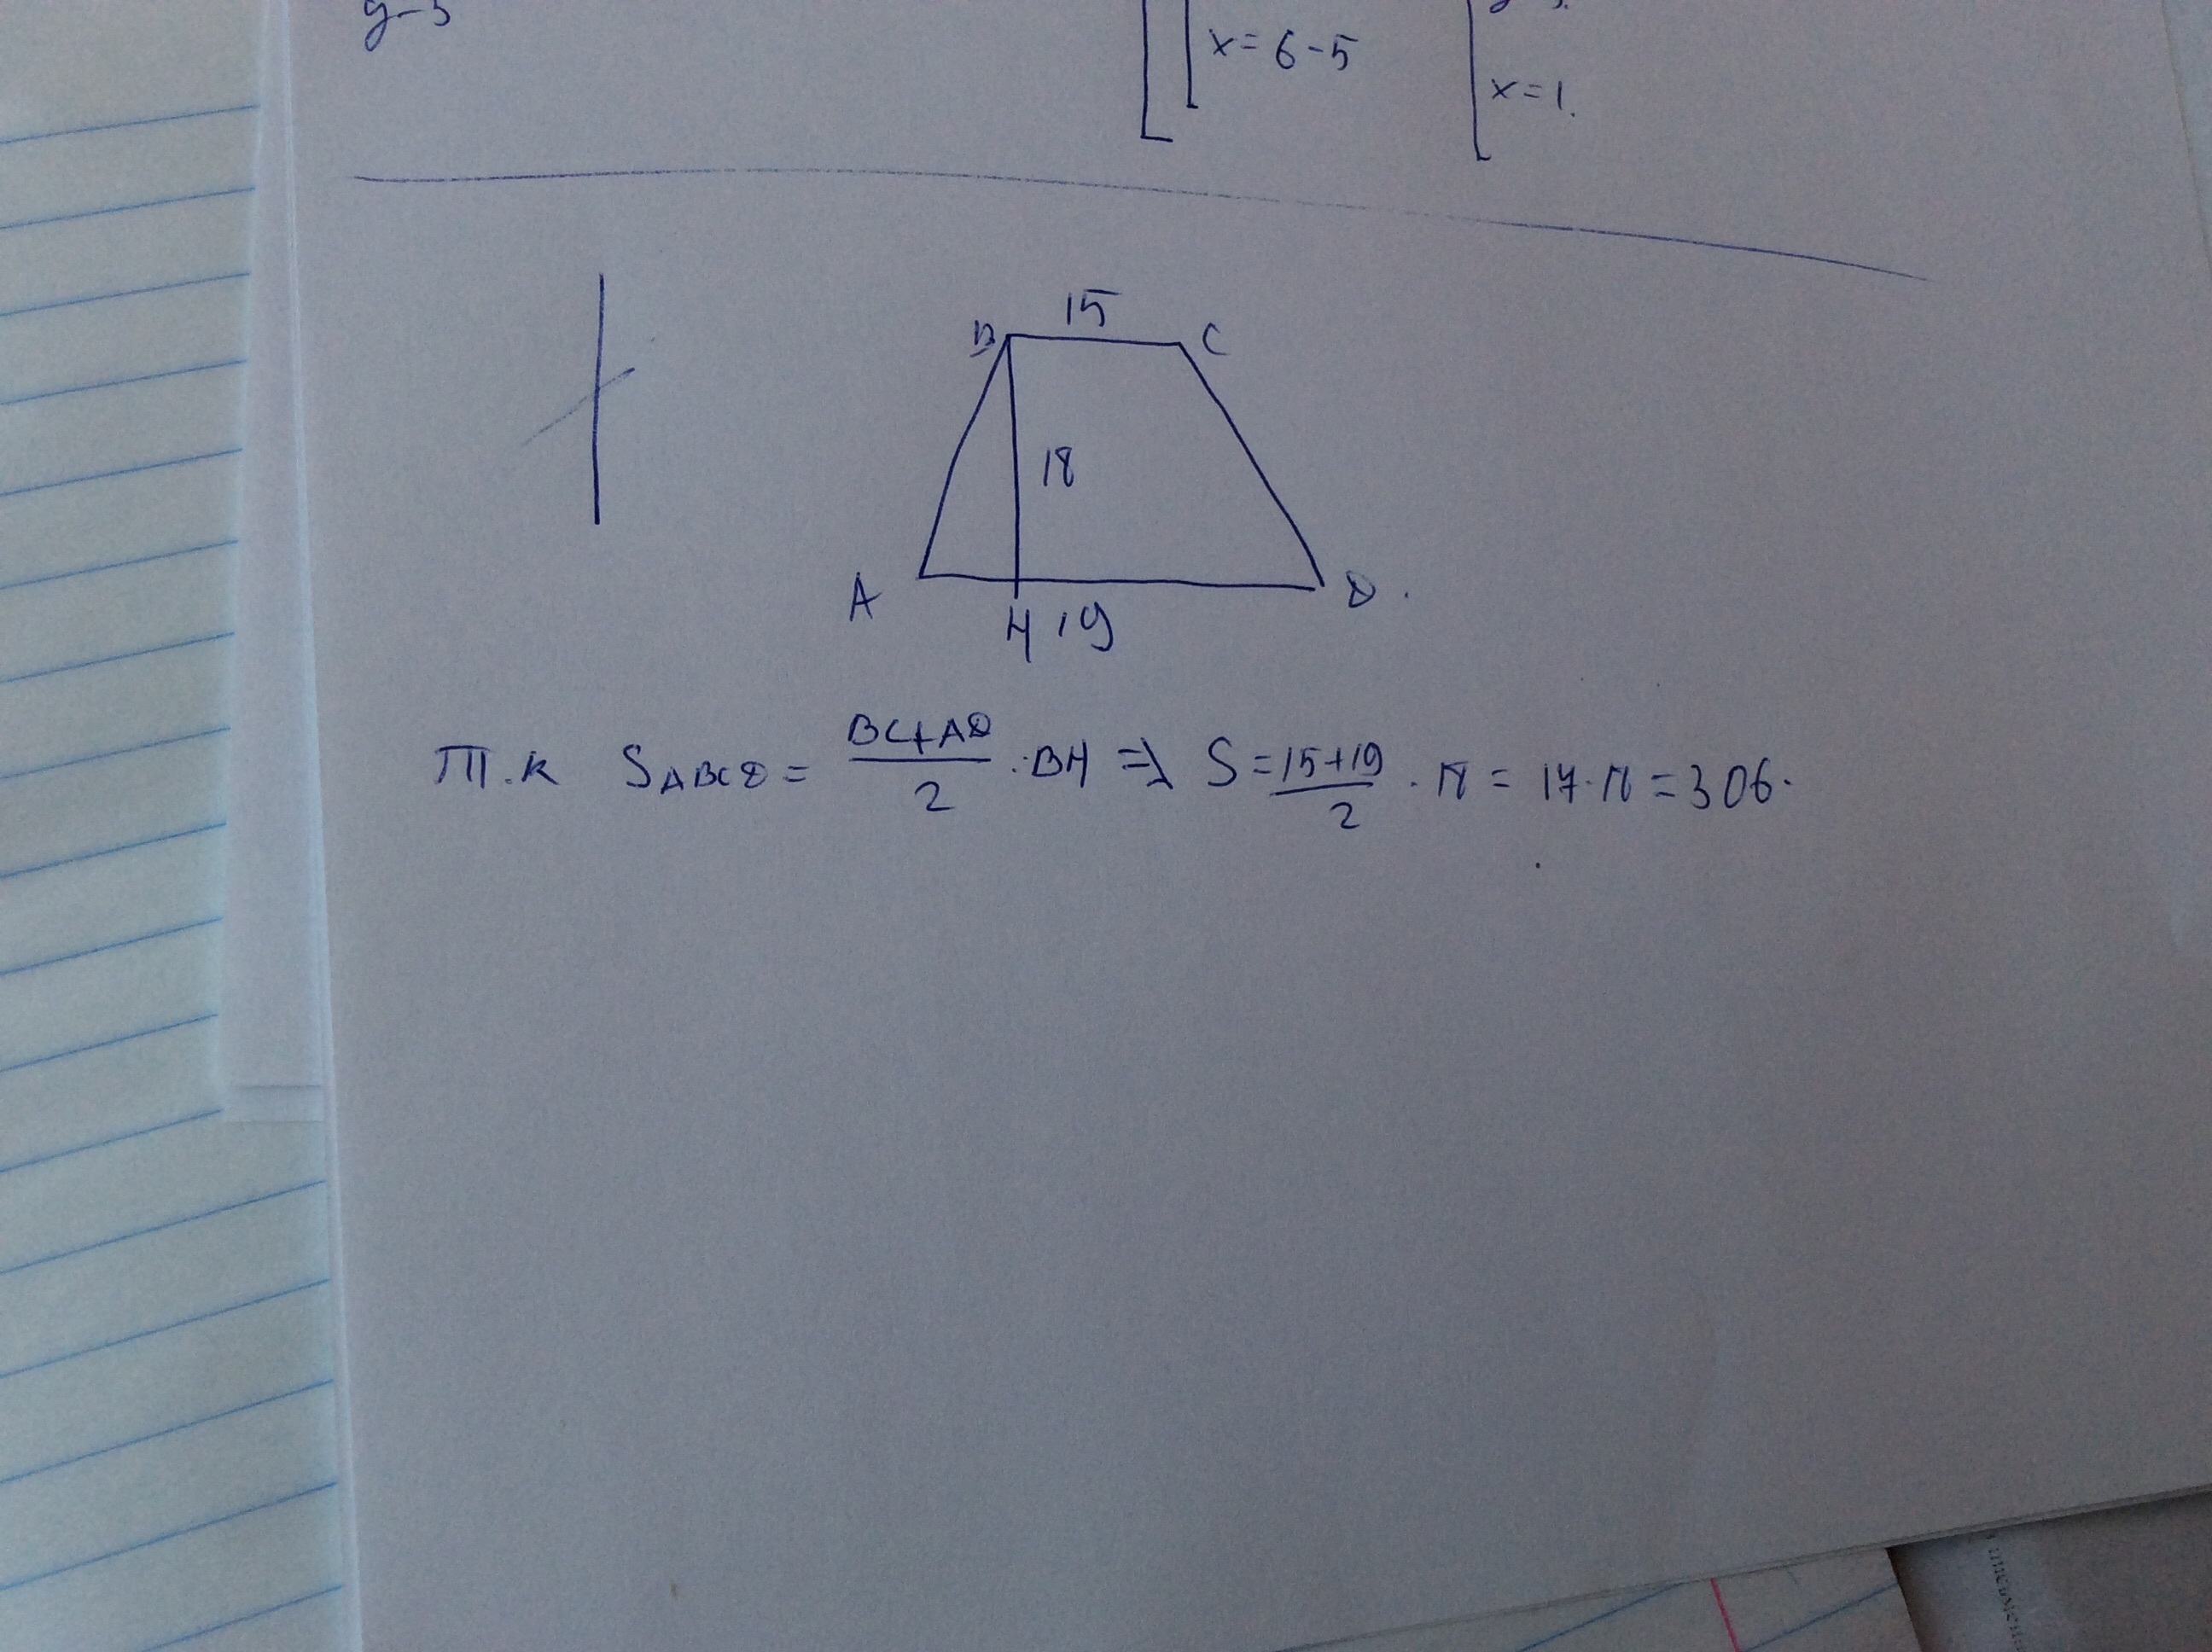 x = 6 - 5
x = 1.
15
B C
18
A D.
H 19
Т.к S ABCD = BC+AD / 2 · BH => S = 15+19 / 2 · 18 = 17 · 18 = 306.